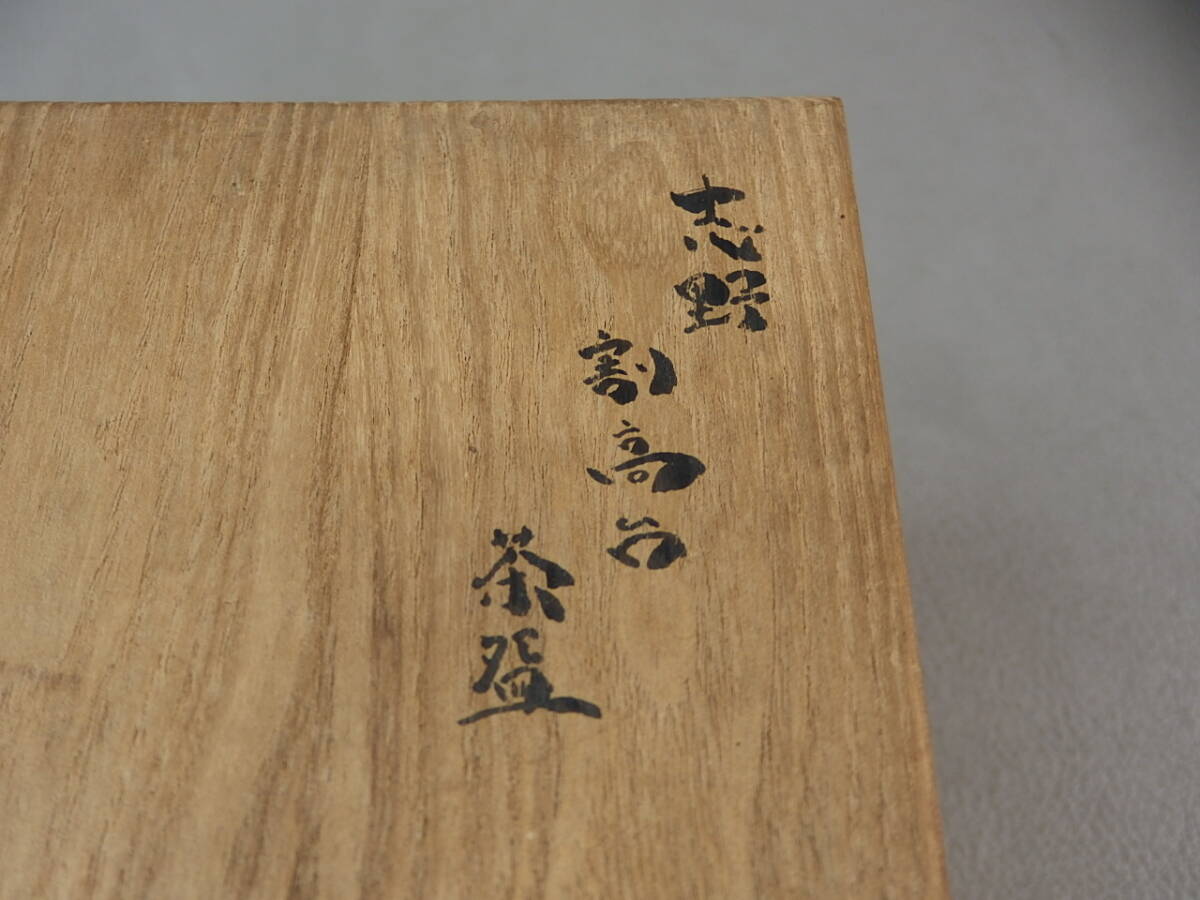 志野
割高台
茶盌